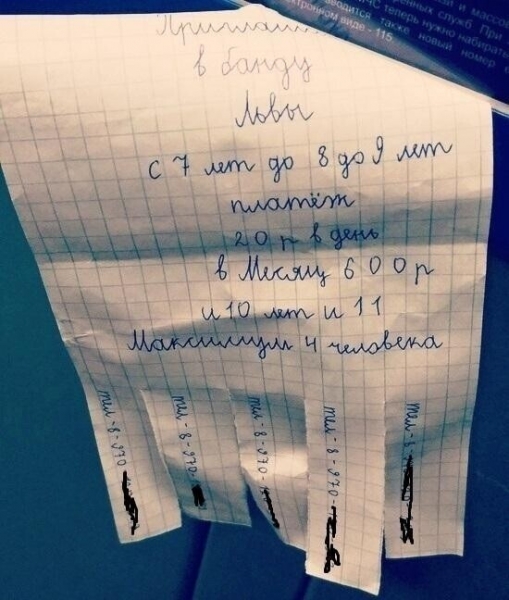 в банду
Львы
с 7 лет до 8 до 9 лет
платёж
20 р в день
в Месяц 600 р
и 10 лет и 11
Максимум 4 человека
тел-8-970-
тел-8-970-
тел-8-970-
тел-8-970-
тел-8-
и массо
енных служб. При
ЧС теперь нужно набирать
водится также новый номер
ктронном виде - 115